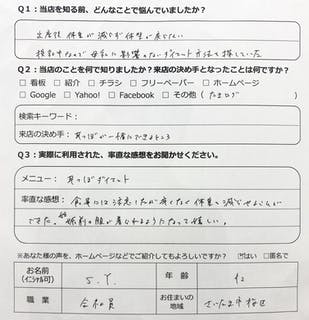 Q1：当店を知る前、どんなことで悩んでいましたか？
出産後 体重が減らず体重が戻らない
授乳中なので母乳に影響のないダイエット方法を探していた
Q2：当店のことを何で知りましたか？来店の決め手となったことは何ですか？
□ 看板 □ 紹介 □ チラシ □ フリーペーパー □ ホームページ
□ Google □ Yahoo! □ Facebook □ その他（
検索キーワード：
来店の決め手： 耳つぼが一緒にできるところ
Q3：実際に利用された、率直な感想をお聞かせください。
メニュー： 耳つぼダイエット
率直な感想： 食事には注意したが 体重を減らせることが
できた。 服が着られるようになって嬉しい。
※あなた様の声を、ホームページなどでご紹介してもよろしいですか？ ☑はい ■匿名で
お名前 (イニシャル可) S.Y. 年齢
職業 会社員 お住まいの地域 さいたま市桜区